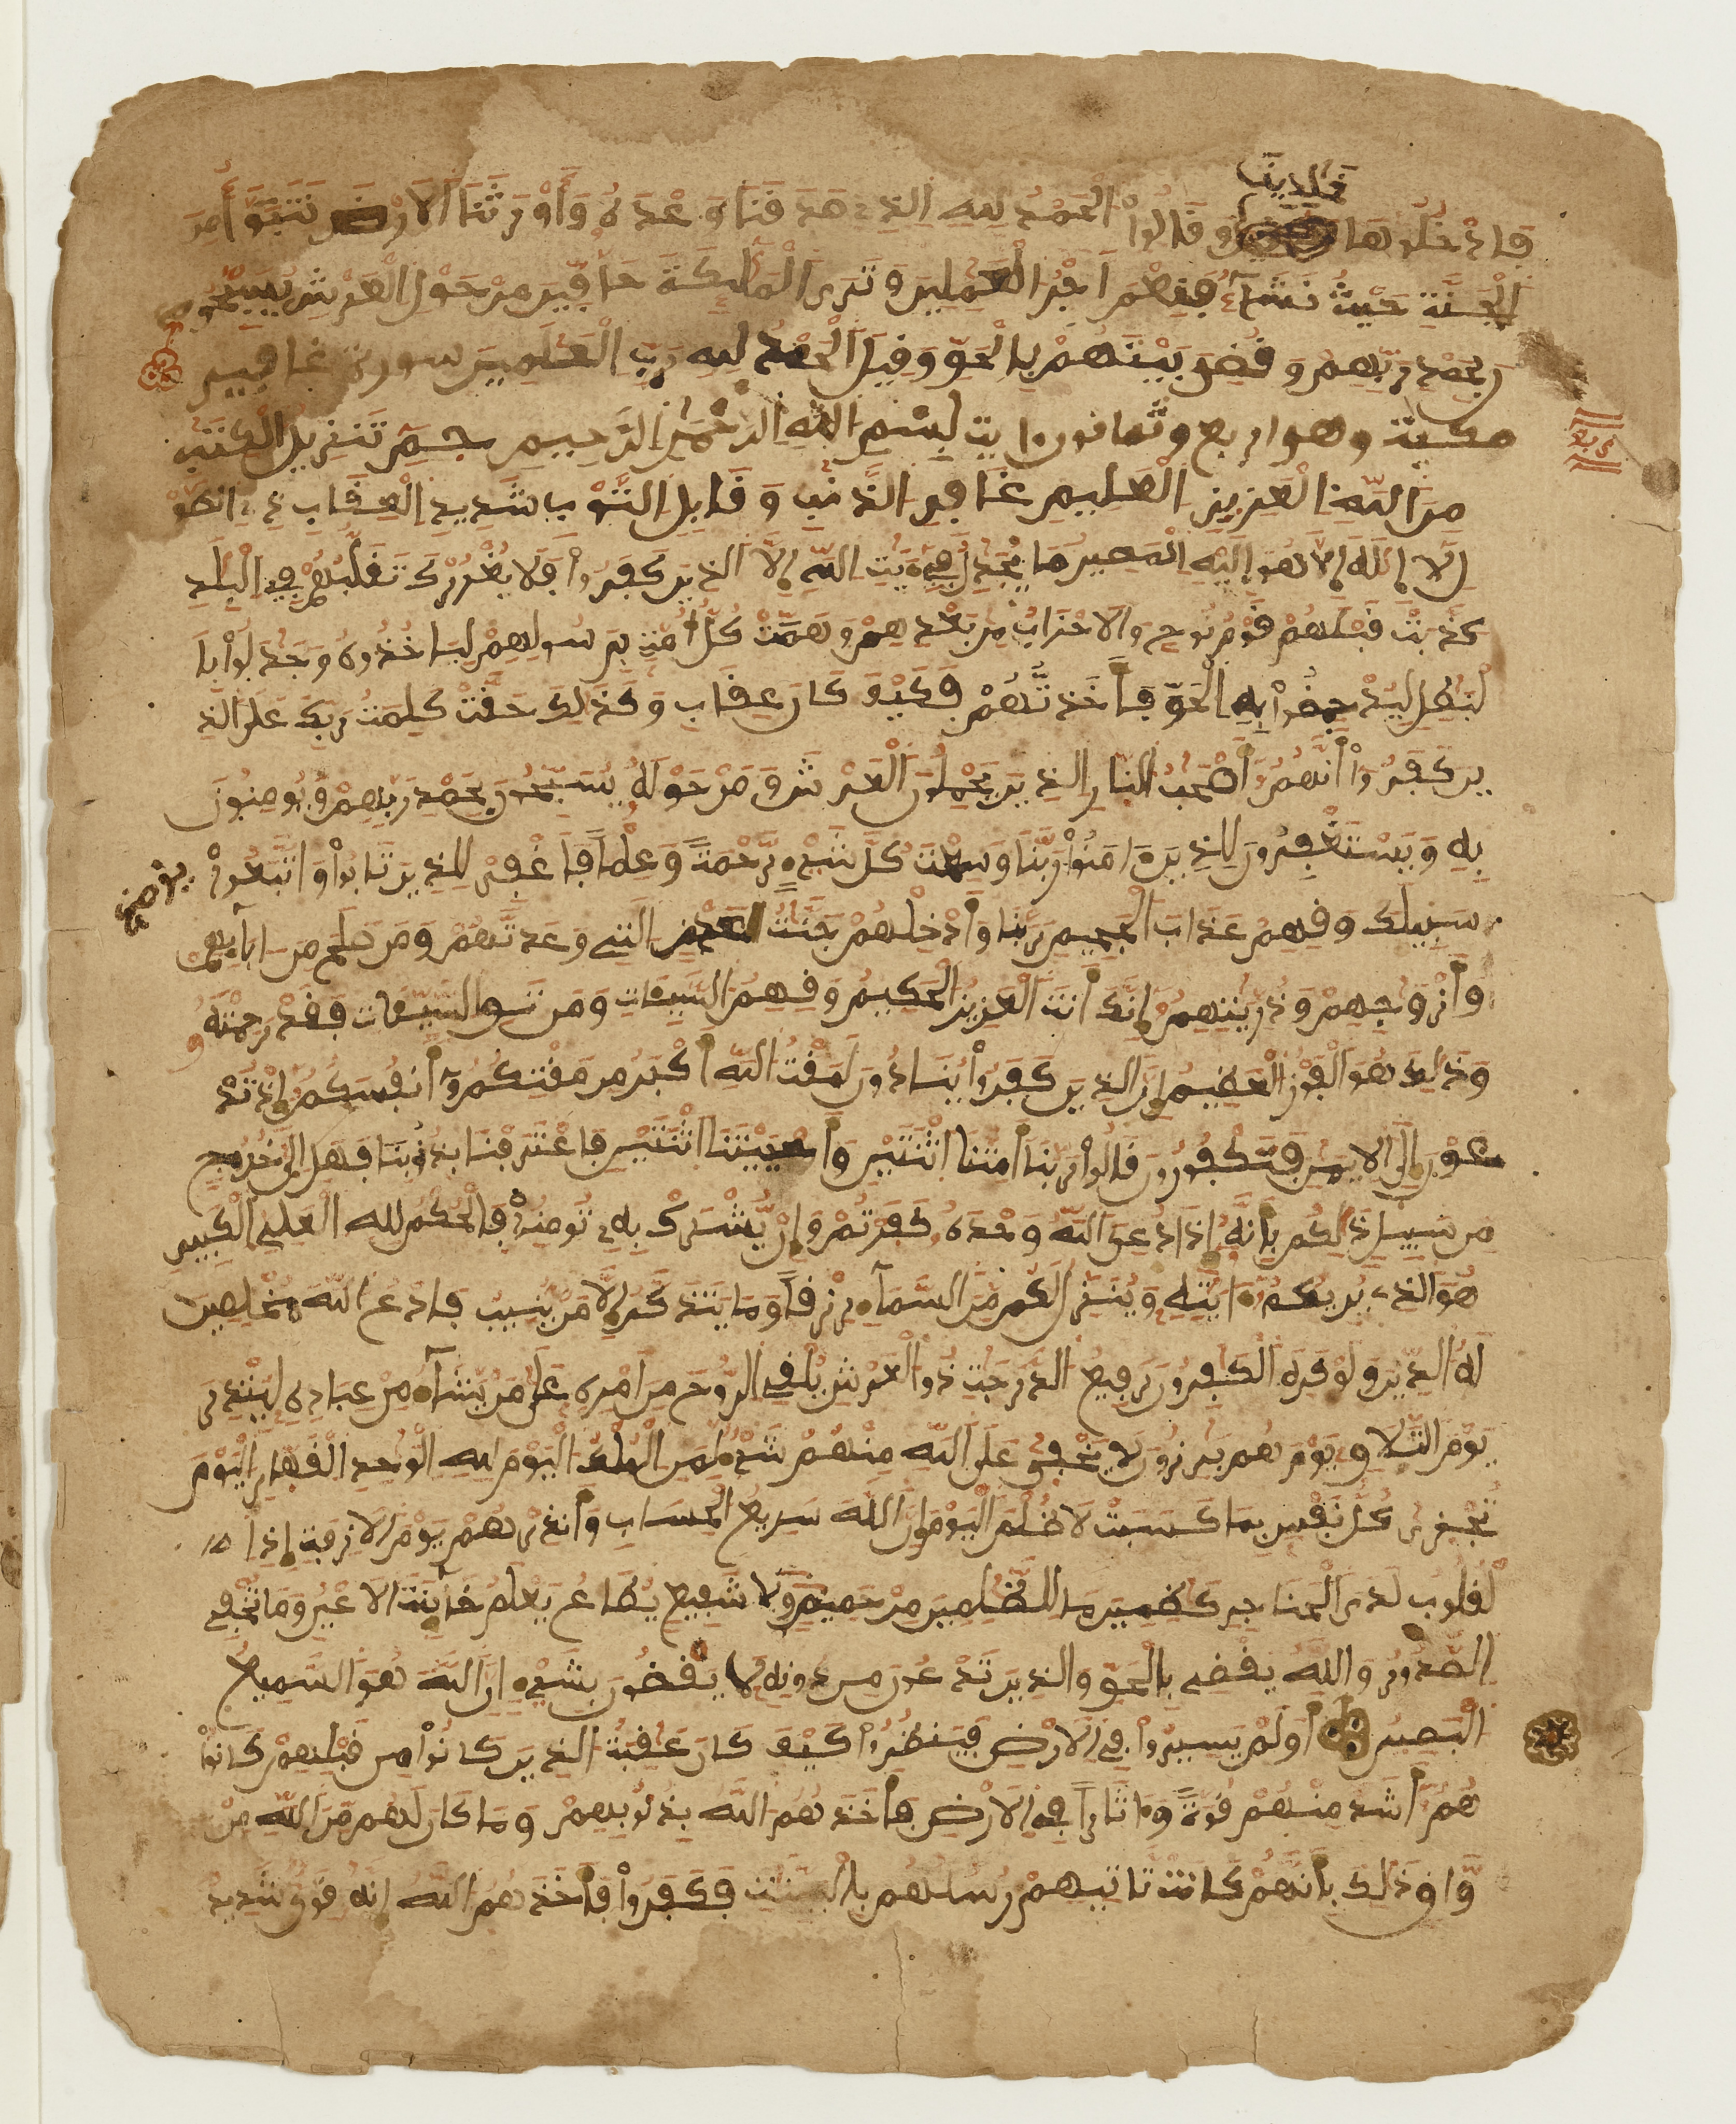 خلدين
فادخلوها وقالوا الحمد لله الذي صدقنا وعده وأورثنا الارض نتبوأ من
الجنة حيث نشآء فنعم اجر العملين وترى الملئكة حافين من حول العرش يسبحون
بحمد ربهم وقضي بينهم بالحق وقيل الحمد لله رب العلمين سورة غافر
مكية وهو اربع وثمانون ايت بسم الله الرحمن الرحيم حم تنزيل الكتب
ربع
من الله العزيز العليم غافر الذنب وقابل التوب شديد العقاب ذي الطو
ل لا إله إلا هو إليه المصير ما يجدل في ءايت الله إلا الذين كفروا فلا يغررك تقلبهم في البلد
كذبت قبلهم قوم نوح والاحزاب من بعدهم وهمت كل أمة برسولهم لياخذوه وجدلوا با
لبطل ليدحضوا به الحق فأخذتهم فكيف كان عقاب وكذلك حقت كلمت ربك على الذ
ين كفروا أنهم أصحب النار الذين يحملون العرش ومن حوله يسبحون بحمد ربهم ويومنون
به ويستغفرون للذين ءامنوا ربنا وسعت كل شيء رحمة وعلما فاغفر للذين تابوا واتبعوا
سبيلك وقهم عذاب الجحيم ربنا وأدخلهم جنت عدن التي وعدتهم ومن صلح من ابآئهم
وأزوجهم وذريتهم إنك أنت العزيز الحكيم وقهم السيئات ومن تق السيئات فقد رحمته
وذلك هو الفوز العظيم إن الذين كفروا ينادون لمقت الله أكبر من مقتكم أنفسكم إذ تد
عون إلى الايمن فتكفرون قالوا ربنا أمتنا اثنتين وأحييتنا اثنتين فاعترفنا بذنوبنا فهل إلى خروج
من سبيل ذلكم بأنه إذا دعي الله وحده كفرتم وإن يشرك به تومنوا فالحكم لله العلي الكبير
هو الذي يريكم ءايته وينزل لكم من السمآء رزقا وما يتذكر إلا من ينيب فادعوا الله مخلصين
له الدين ولو كره الكفرون رفيع الدرجت ذو العرش يلقي الروح من امره على من يشآء من عباده لينذر
يوم التلاق يوم هم برزون لا يخفى على الله منهم شيء لمن الملك اليوم لله الوحد القهار اليوم
تجزى كل نفس بما كسبت لا ظلم اليوم إن الله سريع الحساب وأنذرهم يوم الازفة إذ ا
لقلوب لدى الحناجر كظمين ما للظلمين من حميم ولا شفيع يطاع يعلم خآئنة الاعين وما تخفي
الصدور والله يقضي بالحق والذين تدعون من دونه لا يقضون بشيء إن الله هو السميع
البصير أولم يسيروا في الارض فينظروا كيف كان عقبة الذين كانوا من قبلهم كانوا
هم أشد منهم قوة وءاثارا في الارض فأخذهم الله بذنوبهم وما كان لهم من الله من
واق ذلك بأنهم كانت تاتيهم رسلهم بالبينت فكفروا فأخذهم الله إنه قوي شديد